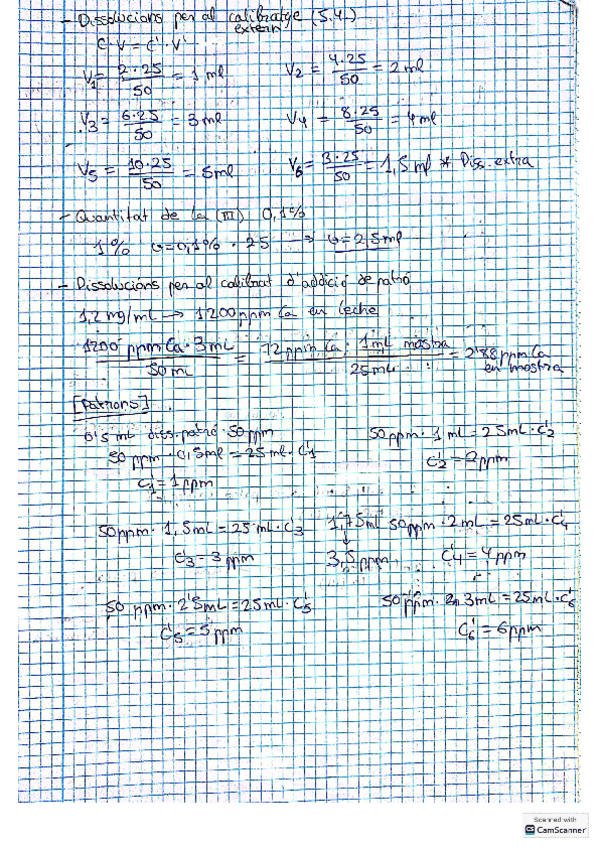 - Dissolucions per al calibratge (5.4.)
extern
C·V = C'·V'
V1 = 2·25/50 = 1 ml V2 = 4·25/50 = 2 ml
V3 = 6·25/50 = 3 ml V4 = 8·25/50 = 4 ml
V5 = 10·25/50 = 5 ml V6 = 3·25/50 = 1,5 ml * Diss. extra
- Quantitat de La (III) 0,1%
1% v = 0,1% · 25 → v = 2,5 ml
- Dissolucions per al calibrat d'addició de patró
1,2 mg/mL → 1200 ppm Ca en leche
1200 ppm Ca · 3 mL / 50 mL = 72 ppm Ca · 1 mL mostra / 25 mL = 2'88 ppm Ca
en mostra
[Patrons]
0'5 mL diss. patró · 50 ppm
50 ppm · 1 mL = 25 mL · C'2
50 ppm · 0,5 ml = 25 ml · C'1
C'2 = 2 ppm
C'1 = 1 ppm
50 ppm · 1,5 mL = 25 mL · C'3 1,75 ml 50 ppm · 2 mL = 25 mL · C'4
C'3 = 3 ppm 3,5 ppm C'4 = 4 ppm
50 ppm · 2'5 mL = 25 mL · C'5 50 ppm · 3 mL = 25 mL · C'6
C'5 = 5 ppm C'6 = 6 ppm
Scanned with
CamScanner